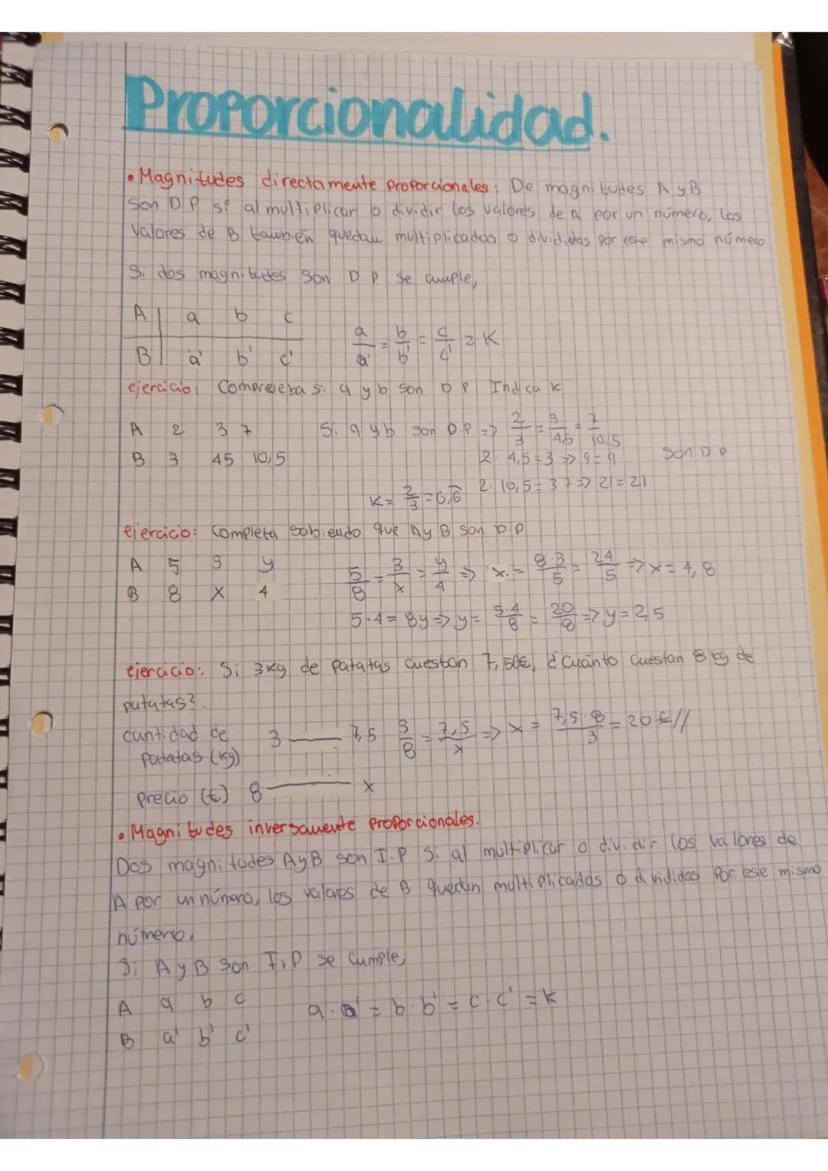 Proporcionalidad.
• Magnitudes directamente proporcionales: De magnitudes A y B
son D P si al multiplicar o dividir los valores de A por un número, los
valores de B también quedan multiplicados o divididos por ese mismo número
Si dos magnitudes son D.P se cumple,
A | a b c
B | a' b' c'
a/a' = b/b' = c/c' = K
ejercicio: Comprueba si a y b son D P Indica K
A 2 3 7
B 3 45 10,5
Si a y b son D.P => 2/3 = 3/4,5 = 7/10,5
2· 4,5 = 3 => 9 = 9 son D P
2· 10,5 = 3 7 => 21 = 21
K = 2/3 = 0,6̅
ejercicio: completa sabiendo que A y B son D.P
A 5 3 y
B 8 x 4
5/8 = 3/x = y/4 => x = 8·3/5 = 24/5 => x = 4,8
5·4 = 8y => y = 5·4/8 = 20/8 => y = 2,5
ejercicio: Si 3kg de patatas cuestan 7,50€, ¿cuánto cuestan 8 kg de
patatas?
cantidad de patatas (kg) 3 —— 7,5
precio (€) 8 —— x
3/8 = 7,5/x => x = 7,5·8/3 = 20€//
• Magnitudes inversamente proporcionales.
Dos magnitudes A y B son I.P si al multiplicar o dividir los valores de
A por un número, los valores de B quedan multiplicados o divididos por ese mismo
número,
Si A y B son I.P se cumple,
A a b c
B a' b' c'
a·a' = b·b' = c·c' = K